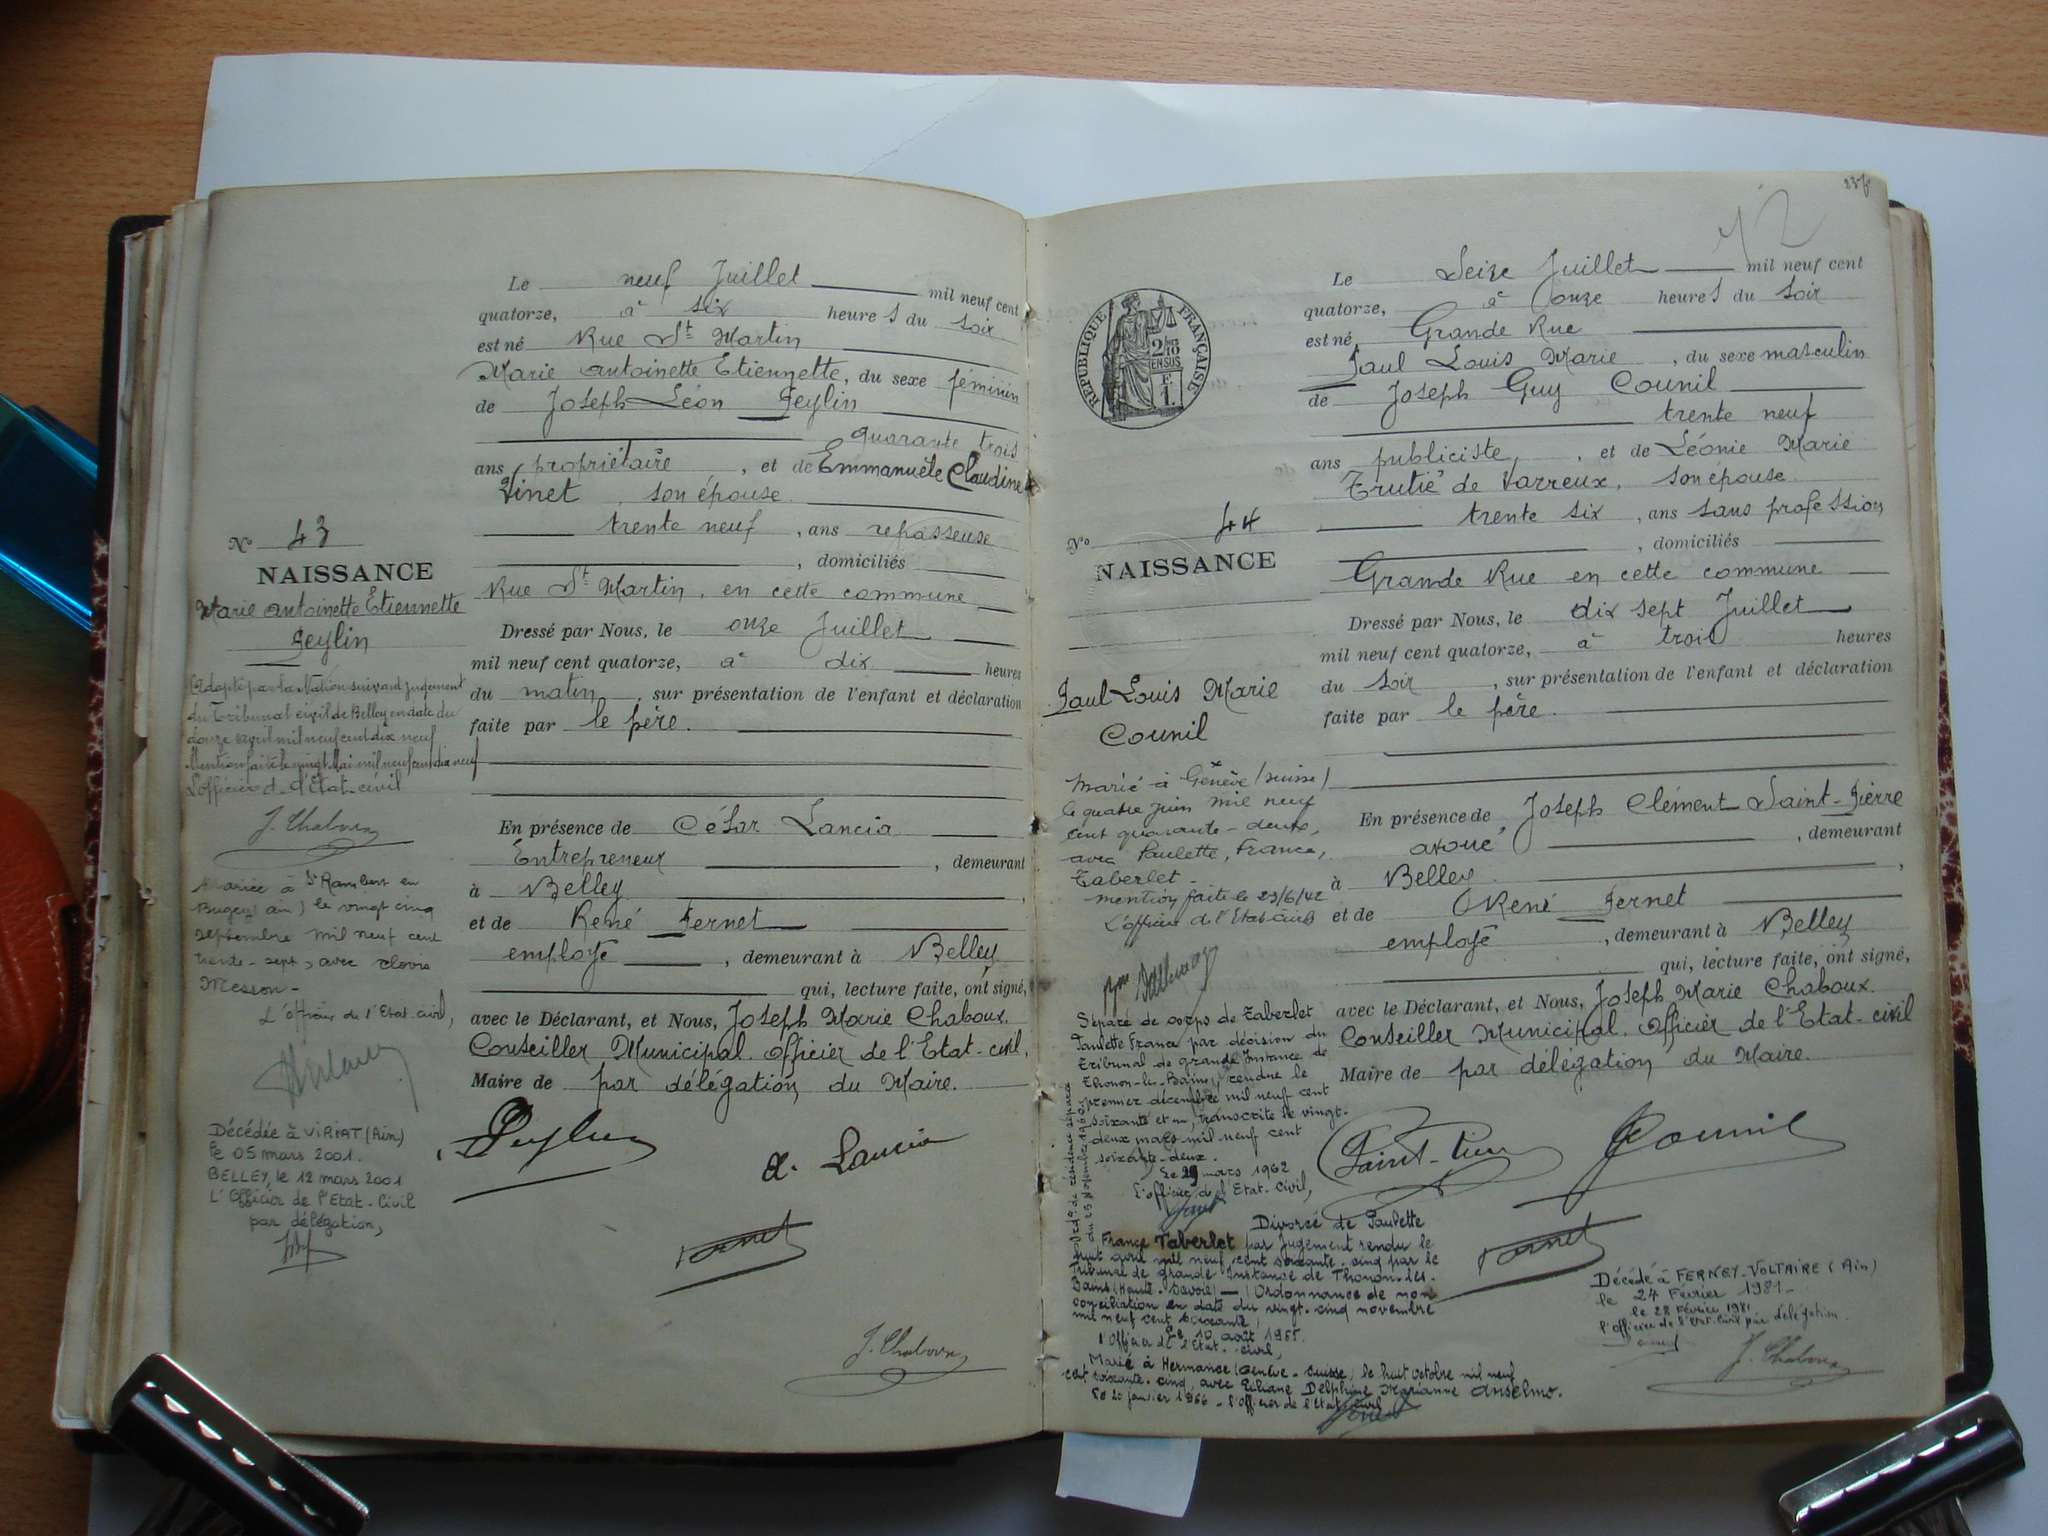 Le neuf Juillet mil neuf cent
quatorze, à six heures du soir
est né Rue St Martin
Marie Antoinette Etiennette, du sexe féminin
de Joseph Léon Peylin
quarante trois
ans propriétaire, et de Emmanuèle Claudine
Vinet, son épouse
trente neuf, ans repasseuse
, domiciliés
Rue St Martin, en cette commune
Dressé par Nous, le onze Juillet
mil neuf cent quatorze, à dix heures
du matin, sur présentation de l'enfant et déclaration
faite par le père.
En présence de César Lancia
Entrepreneur, demeurant
à Belley,
et de René Fernet
employé, demeurant à Belley
qui, lecture faite, ont signé,
avec le Déclarant, et Nous, Joseph Marie Chaboux.
Conseiller Municipal. Officier de l'Etat-civil,
Maire de par délégation du Maire.
Peylin
Lancia
J. Chaboux
No 43
NAISSANCE
Marie Antoinette Etiennette
Peylin
Adopté par la Nation suivant jugement
du Tribunal civil de Belley en date du
douze avril mil neuf cent dix neuf
Mention faite le vingt Mai mil neuf cent dix neuf
L'officier d l'Etat-civil
J. Chaboux
Mariée à St Rambert en
Bugey (ain) le vingt cinq
septembre mil neuf cent
trente-sept, avec Clovis
Messon-
L'officier de l'Etat-civil,
Décédée à VIRIAT (Ain)
le 05 mars 2001.
BELLEY, le 12 mars 2001
L'Officier de l'Etat-Civil
par délégation,
Le Seize Juillet mil neuf cent
quatorze, à onze heures du soir
est né Grande Rue
Paul Louis Marie, du sexe masculin
de Joseph Guy Counil
trente neuf
ans publiciste, et de Léonie Marie
Trutié de Varreux, son épouse
trente six, ans sans profession
, domiciliés
Grande Rue en cette commune
Dressé par Nous, le dix sept Juillet
mil neuf cent quatorze, à trois heures
du soir, sur présentation de l'enfant et déclaration
faite par le père.
En présence de Joseph Clément Saint-Pierre
avoué, demeurant
à Belley,
et de René Fernet
employé, demeurant à Belley
qui, lecture faite, ont signé,
avec le Déclarant, et Nous, Joseph Marie Chaboux.
Conseiller Municipal. Officier de l'Etat-civil
Maire de par délégation du Maire.
Saint-Pierre
Counil
Décédé à FERNEY-VOLTAIRE (Ain)
le 24 Février 1981-
le 28 Février 1981
l'officier de l'Etat-Civil par délégation
J. Chaboux
RÉPUBLIQUE FRANÇAISE
No 44
NAISSANCE
Paul Louis Marie
Counil
Marié à Genève (suisse)
le quatre juin mil neuf
cent quarante-deux,
avec Paulette, France,
Taberlet-
mention faite le 29/6/42
L'officier de l'Etat-civil
Séparé de corps de Taberlet
Paulette France par décision du
Tribunal de grande Instance de
Thonon-les-Bains, rendue le
premier décembre mil neuf cent
soixante et un, transcrite le vingt-
deux mars mil neuf cent
soixante-deux.
Le 29 mars 1962
l'officier de l'Etat-Civil,
Divorcé de Paulette
France Taberlet par Jugement rendu le
huit avril mil neuf cent soixante-cinq par le
Tribunal de grande Instance de Thonon-les-
Bains (Haute-Savoie) - (Ordonnance de non
conciliation en date du vingt-cinq novembre
mil neuf cent soixante)
Le 10 août 1965
l'Officier de l'Etat-Civil,
Marié à Hermance (Genève-Suisse) le huit octobre mil neuf
cent soixante-cinq avec Liliane Delphine Marianne Anselmo.
Le 20 janvier 1966 - l'Officier de l'Etat-Civil